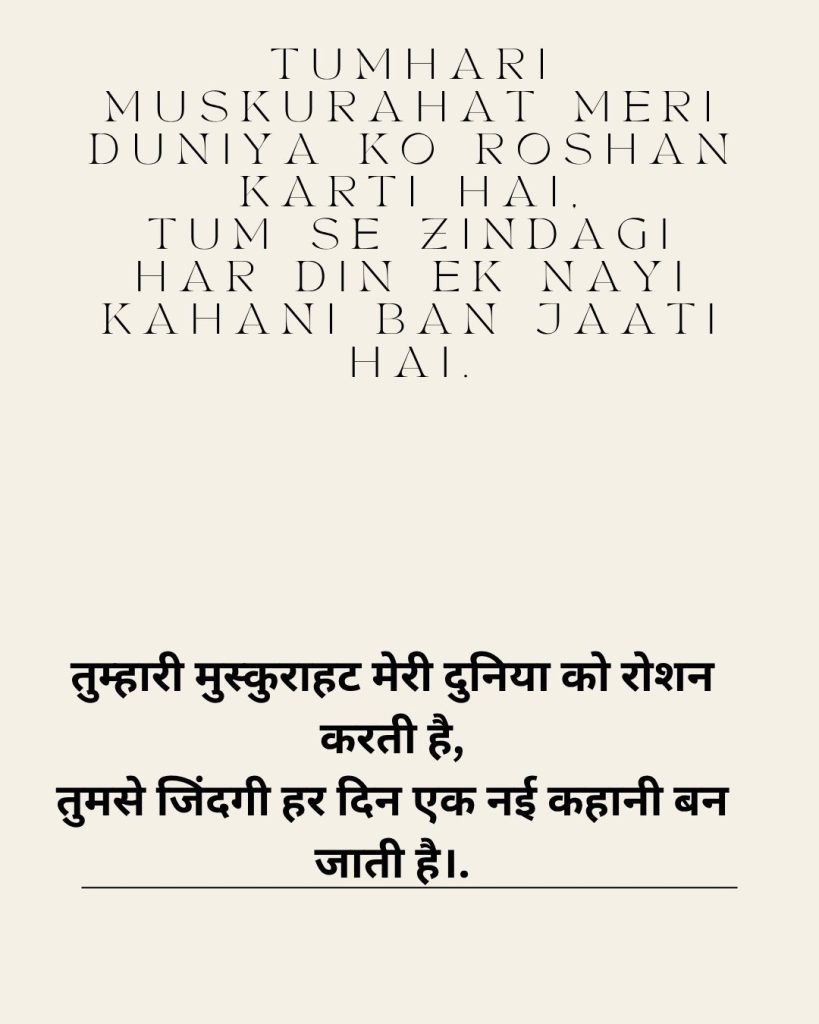 TUMHARI
MUSKURAHAT MERI
DUNIYA KO ROSHAN
KARTI HAI,
TUM SE ZINDAGI
HAR DIN EK NAYI
KAHANI BAN JAATI
HAI.
तुम्हारी मुस्कुराहट मेरी दुनिया को रोशन
करती है,
तुमसे जिंदगी हर दिन एक नई कहानी बन
जाती है।.